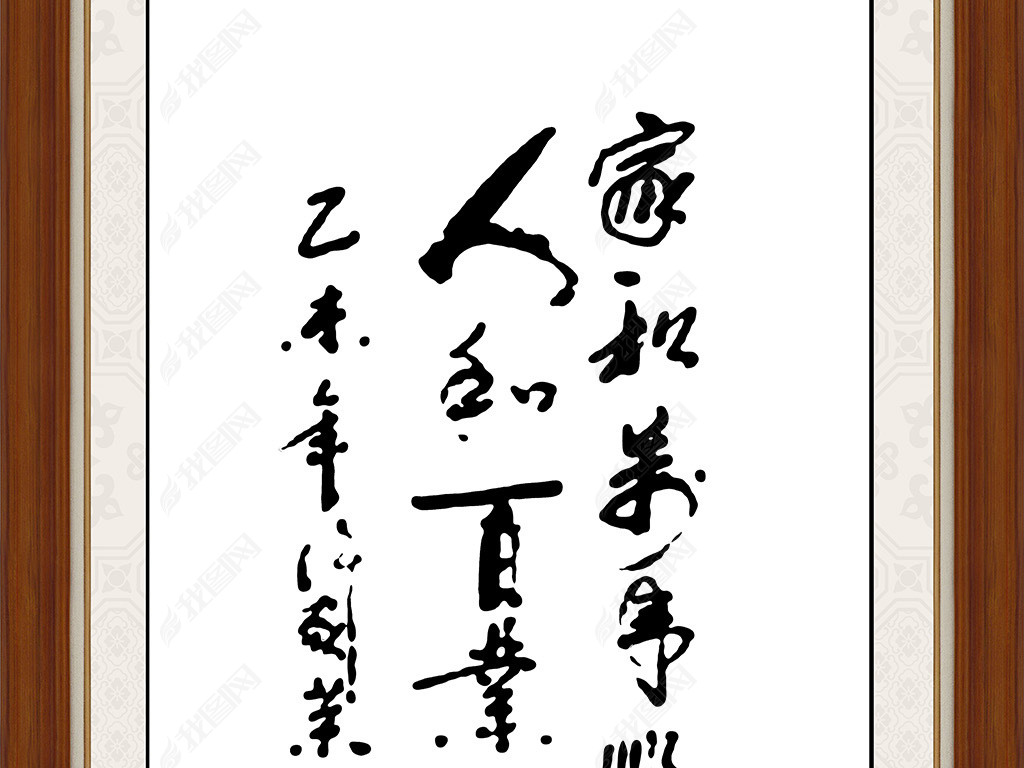 家和万事
人和百业
乙未年
我图网